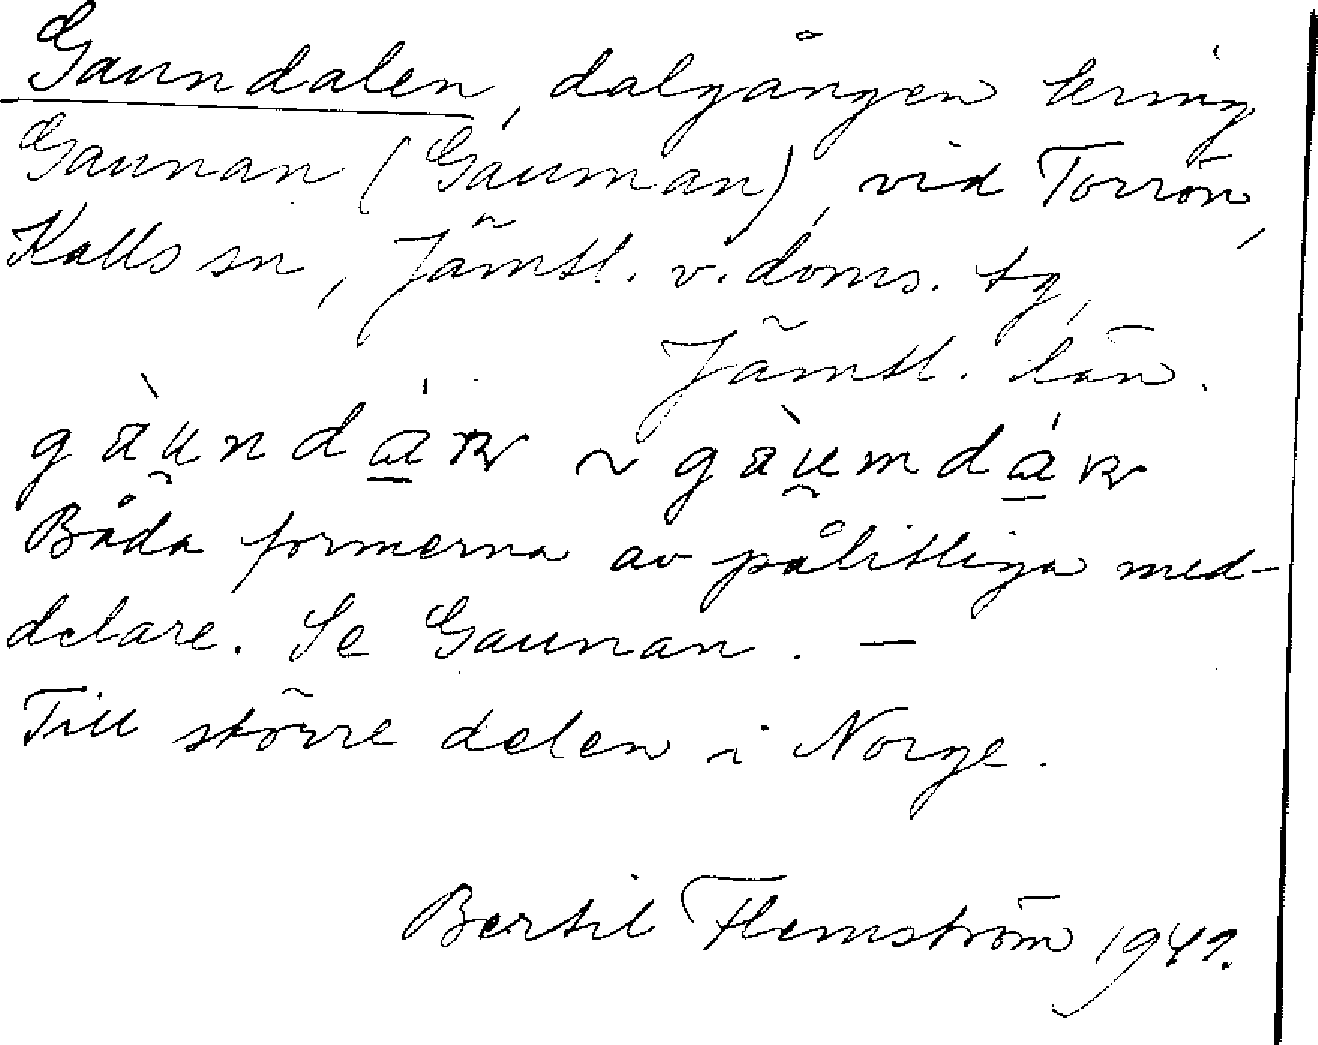 Gaundalen, dalgången kring
Gaunan (Gauman), vid Torrön,
Kalls sn, Jämtl. v. doms. tg,
Jämtl. län.
Båda formerna av pålitliga med-
delare. Se Gaunan. –
Till större delen i Norge.
Bertil Flemström